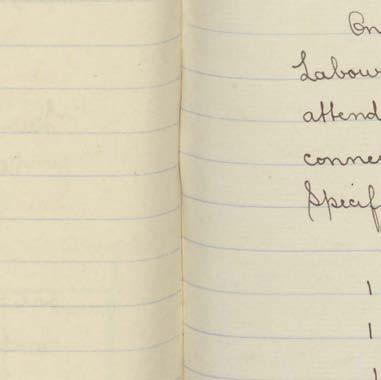 On
Labour
attend
connec
Specif
1
1
1